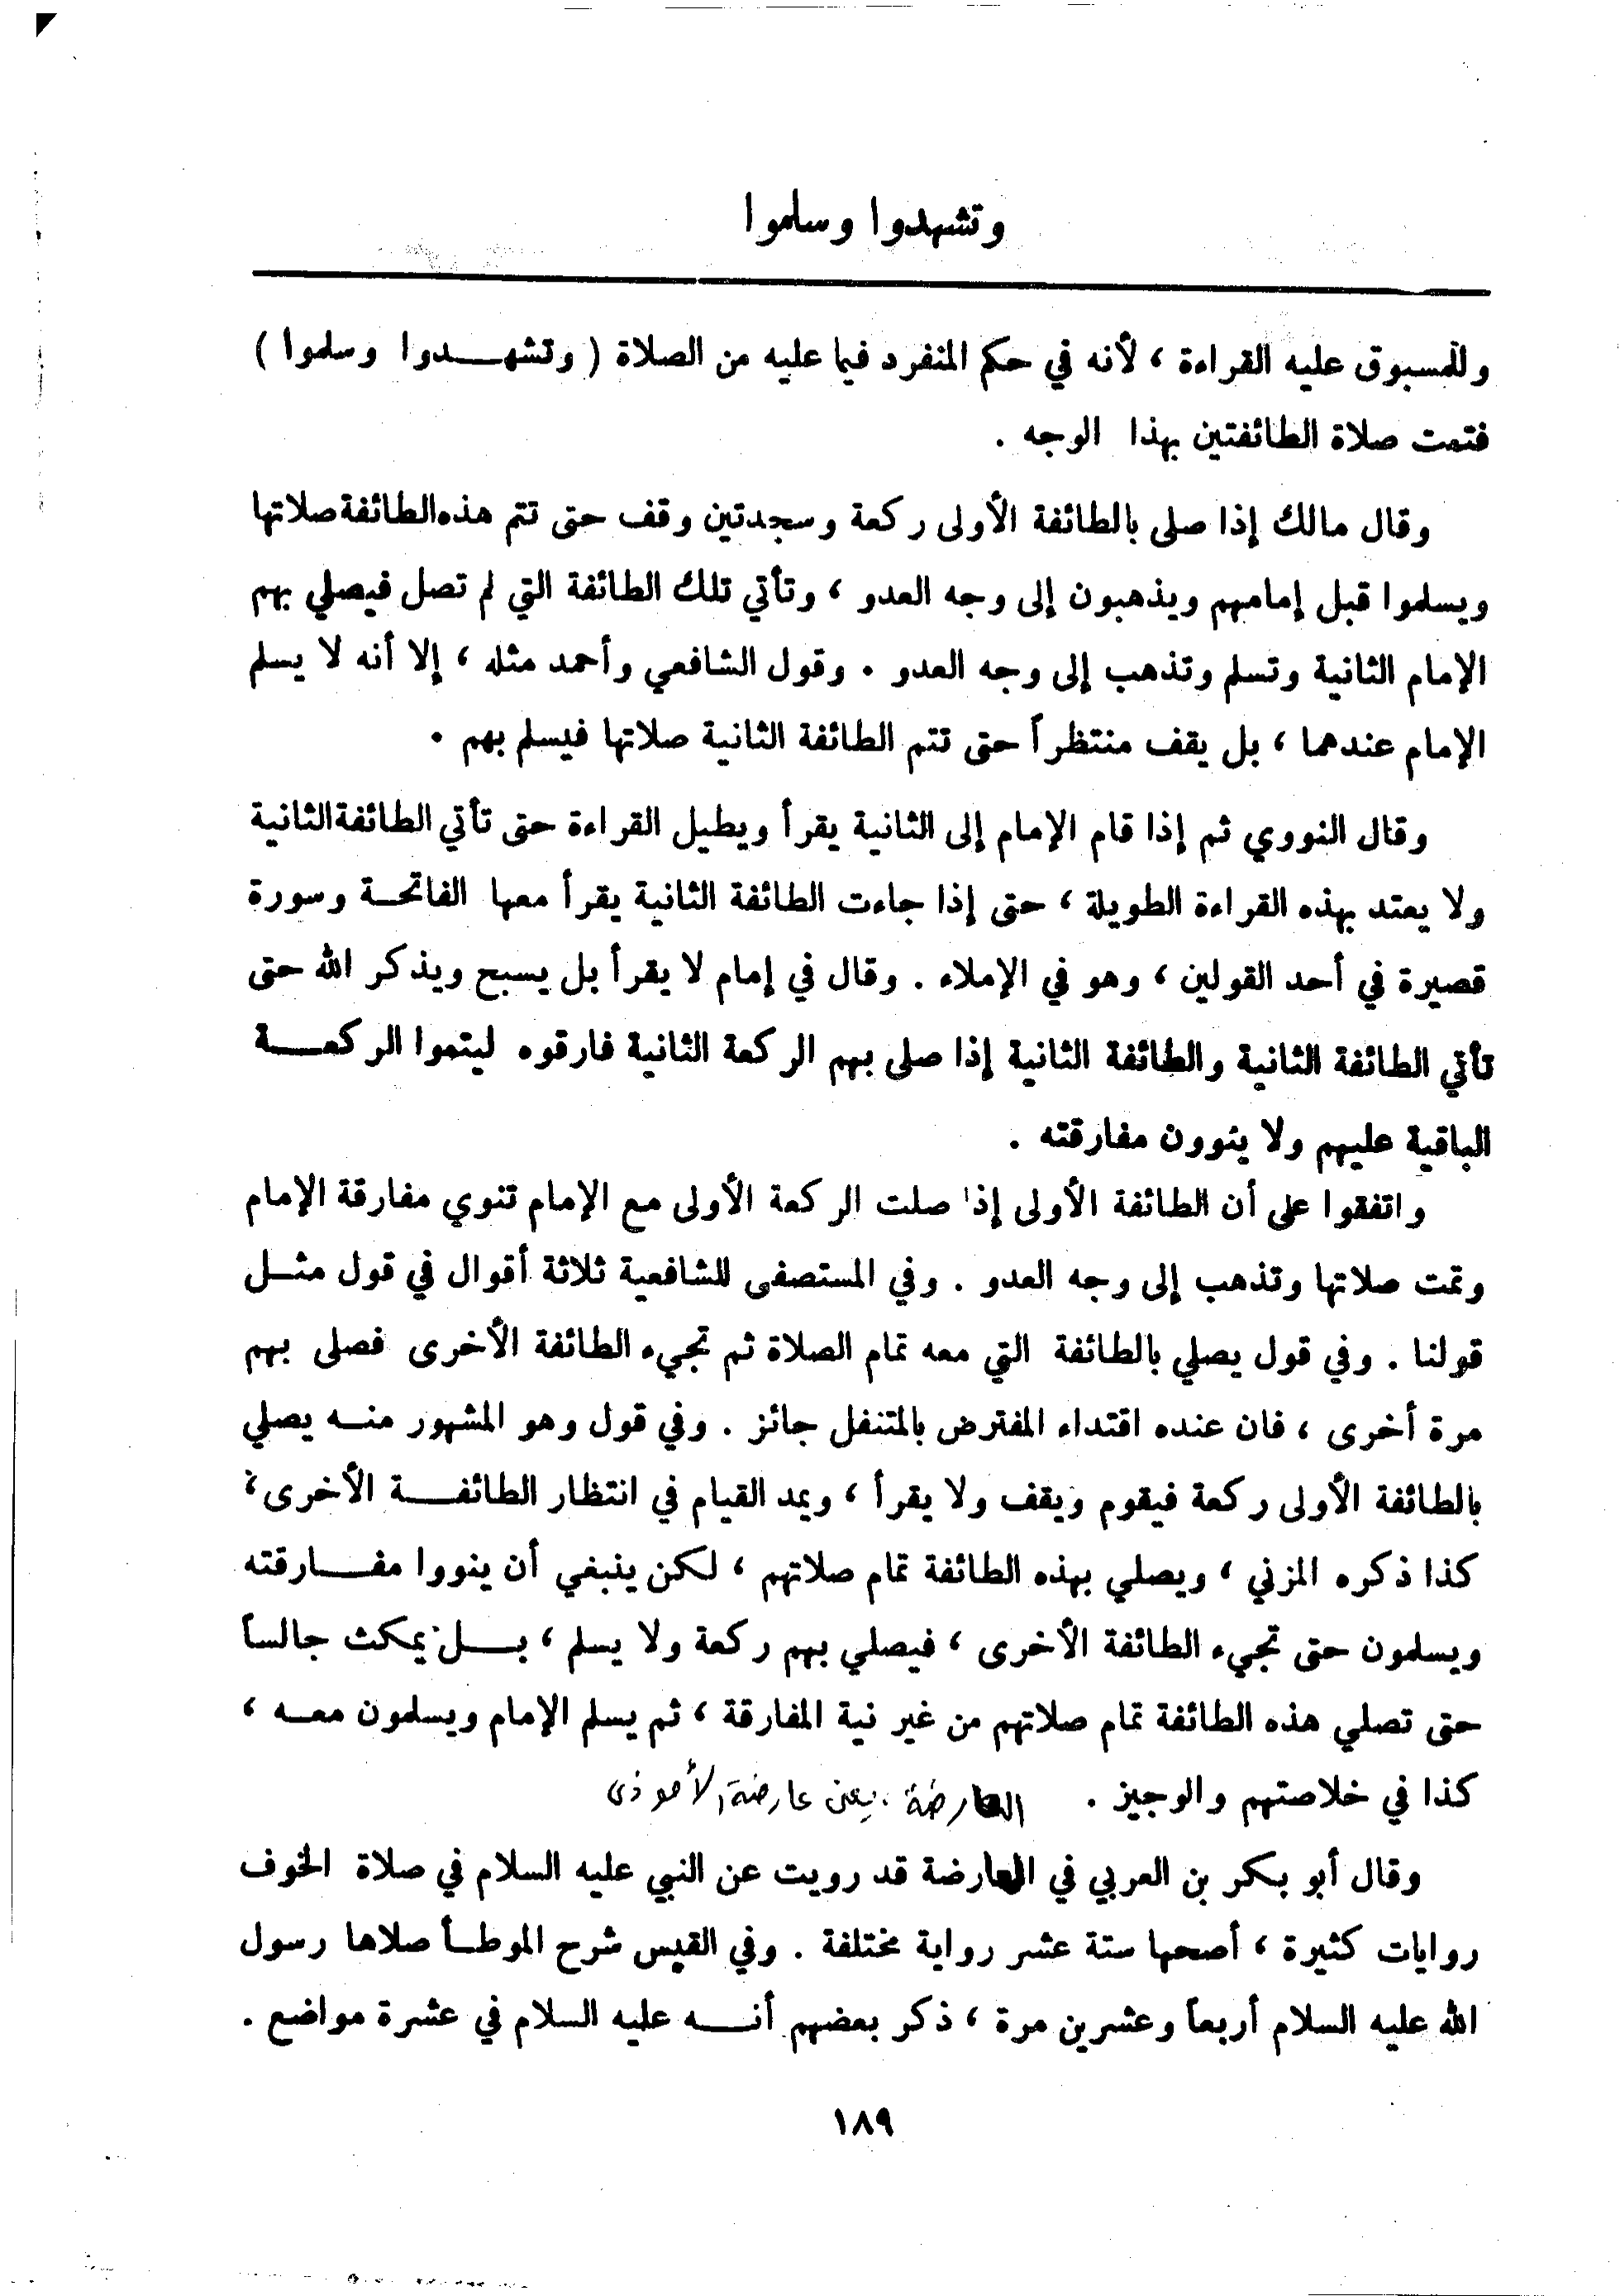 وتشهدوا وسلموا
وللمسبوق عليه القراءة ، لأنه في حكم المنفرد فيما عليه من الصلاة ( وتشهدوا وسلموا )
فتمت صلاة الطائفتين بهذا الوجه .
وقال مالك إذا صلى بالطائفة الأولى ركعة وسجدتين وقف حتى تتم هذه الطائفة صلاتها
ويسلموا قبل إمامهم ويذهبون إلى وجه العدو ، وتأتي تلك الطائفة التي لم تصل فيصلي بهم
الإمام الثانية وتسلم وتذهب إلى وجه العدو . وقول الشافعي وأحمد مثله ، إلا أنه لا يسلم
الإمام عندهما ، بل يقف منتظراً حتى تتم الطائفة الثانية صلاتها فيسلم بهم .
وقال النووي ثم إذا قام الإمام إلى الثانية يقرأ ويطيل القراءة حتى تأتي الطائفة الثانية
ولا يعتد بهذه القراءة الطويلة ، حتى إذا جاءت الطائفة الثانية يقرأ معها الفاتحة وسورة
قصيرة في أحد القولين ، وهو في الإملاء . وقال في إمام لا يقرأ بل يسبح ويذكر الله حتى
تأتي الطائفة الثانية والطائفة الثانية إذا صلى بهم الركعة الثانية فارقوه ليتموا الركعة
الباقية عليهم ولا ينوون مفارقته .
واتفقوا على أن الطائفة الأولى إذا صلت الركعة الأولى مع الإمام تنوي مفارقة الإمام
وتمت صلاتها وتذهب إلى وجه العدو . وفي المستصفى للشافعية ثلاثة أقوال في قول مثل
قولنا . وفي قول يصلي بالطائفة التي معه تمام الصلاة ثم تجيء الطائفة الأخرى فصلى بهم
مرة أخرى ، فان عنده اقتداء المفترض بالمتنفل جائز . وفي قول وهو المشهور منه يصلي
بالطائفة الأولى ركعة فيقوم ويقف ولا يقرأ ، ويمد القيام في انتظار الطائفة الأخرى ،
كذا ذكره المزني ، ويصلي بهذه الطائفة تمام صلاتهم ، لكن ينبغي أن ينووا مفارقته
ويسلمون حتى تجيء الطائفة الأخرى ، فيصلي بهم ركعة ولا يسلم ، بل يمكث جالساً
حتى تصلي هذه الطائفة تمام صلاتهم من غير نية المفارقة ، ثم يسلم الإمام ويسلمون معه ،
كذا في خلاصتهم والوجيز . العارضة . يعني عارضة الأحوذي
وقال أبو بكر بن العربي في العارضة قد رويت عن النبي عليه السلام في صلاة الخوف
روايات كثيرة ، أصحها ستة عشر رواية مختلفة . وفي القبس شرح الموطأ صلاها رسول
الله عليه السلام أربعاً وعشرين مرة ، ذكر بعضهم أنه عليه السلام في عشرة مواضع .
١٨٩